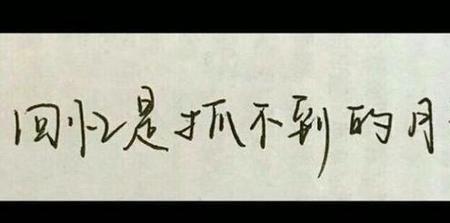 回忆是抓不到的月